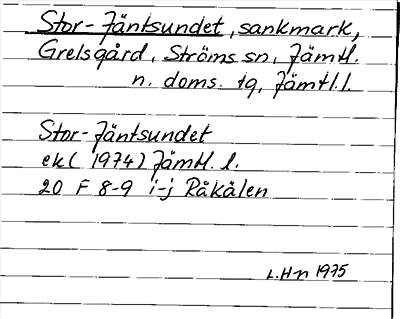 Stor-Jäntsundet, sankmark,
Grelsgård, Ströms sn, Jämtl.
n. doms. tg, Jämtl.l.
Stor-Jäntsundet
ek (1974) Jämtl. l.
20 F 8-9 i-j Råkålen
L.Hn 1975